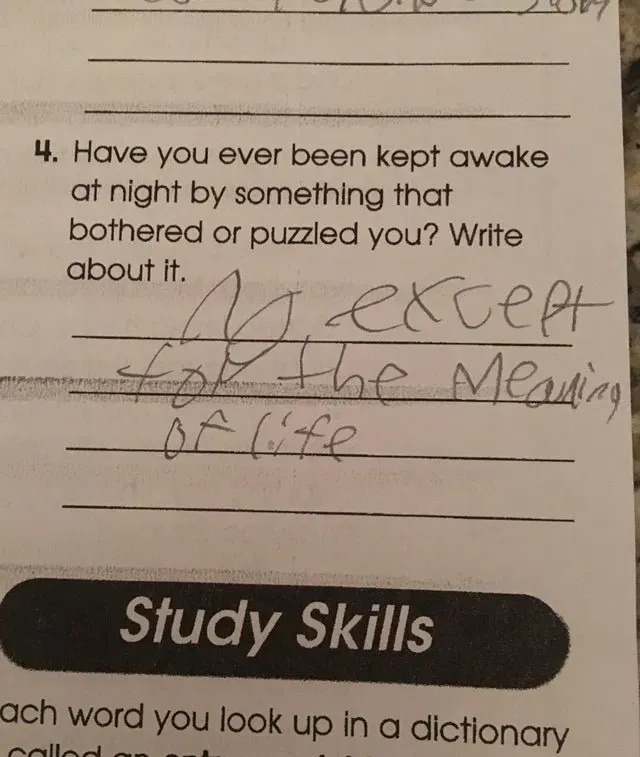 4. Have you ever been kept awake
at night by something that
bothered or puzzled you? Write
about it.
No, except
for the Meaning
of life
Study Skills
ach word you look up in a dictionary
called an